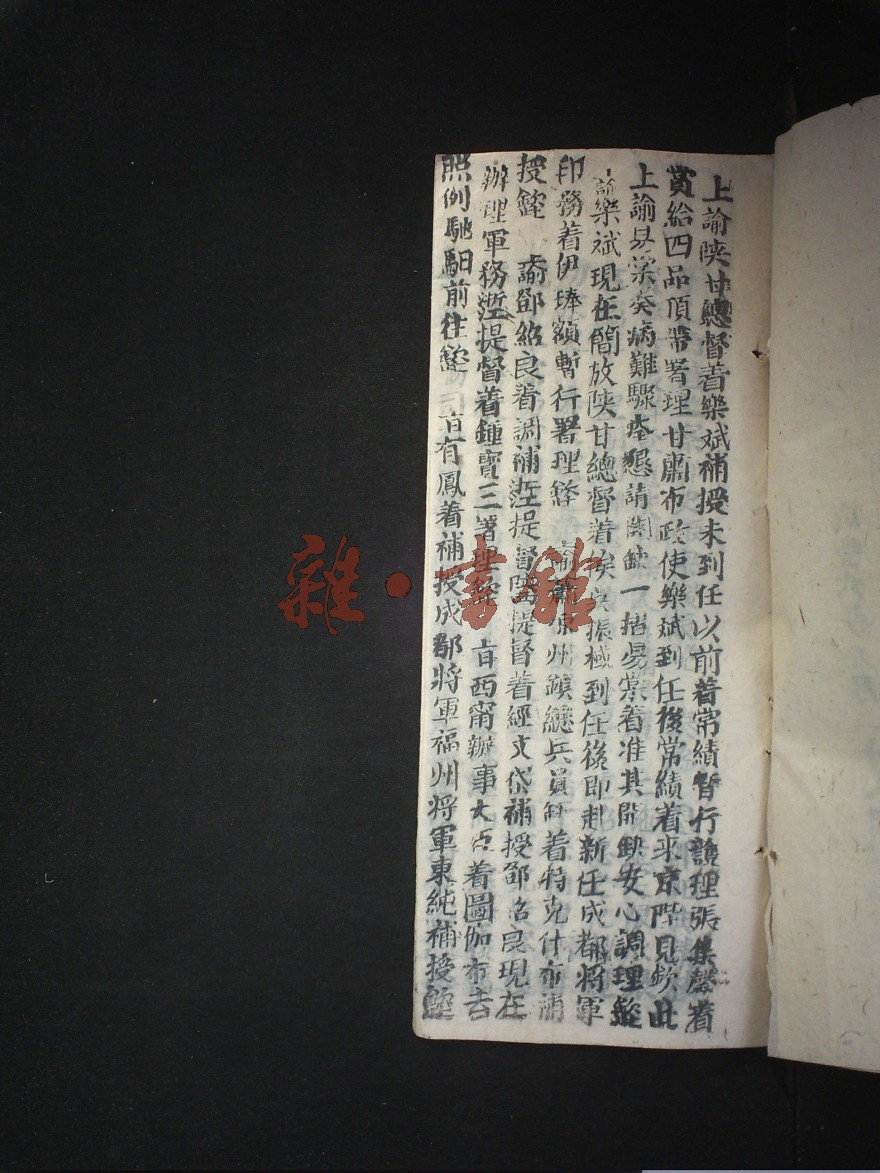 上諭陝甘總督着樂斌補授未到任以前着常績暫行護理張集馨着
賞給四品頂帶署理甘肅布政使樂斌到任後常績着來京陛見欽此
上諭易棠奏病難驟痊懇請開缺一摺易棠着准其開缺安心調理
諭樂斌現在簡放陝甘總督着俟吳振棫到任後即赴新任成都將軍
印務着伊琫額暫行署理 諭肅州鎮總兵員缺着特克什布補
授 諭邵紹良着調補提督提督着經文岱補授邵紹良現在
辦理軍務提督着鍾寶三署理 旨西甯辦事大臣着圖伽布去
照例馳馹前往 旨有鳳着補授成都將軍福州將軍東純補授
雜·書館